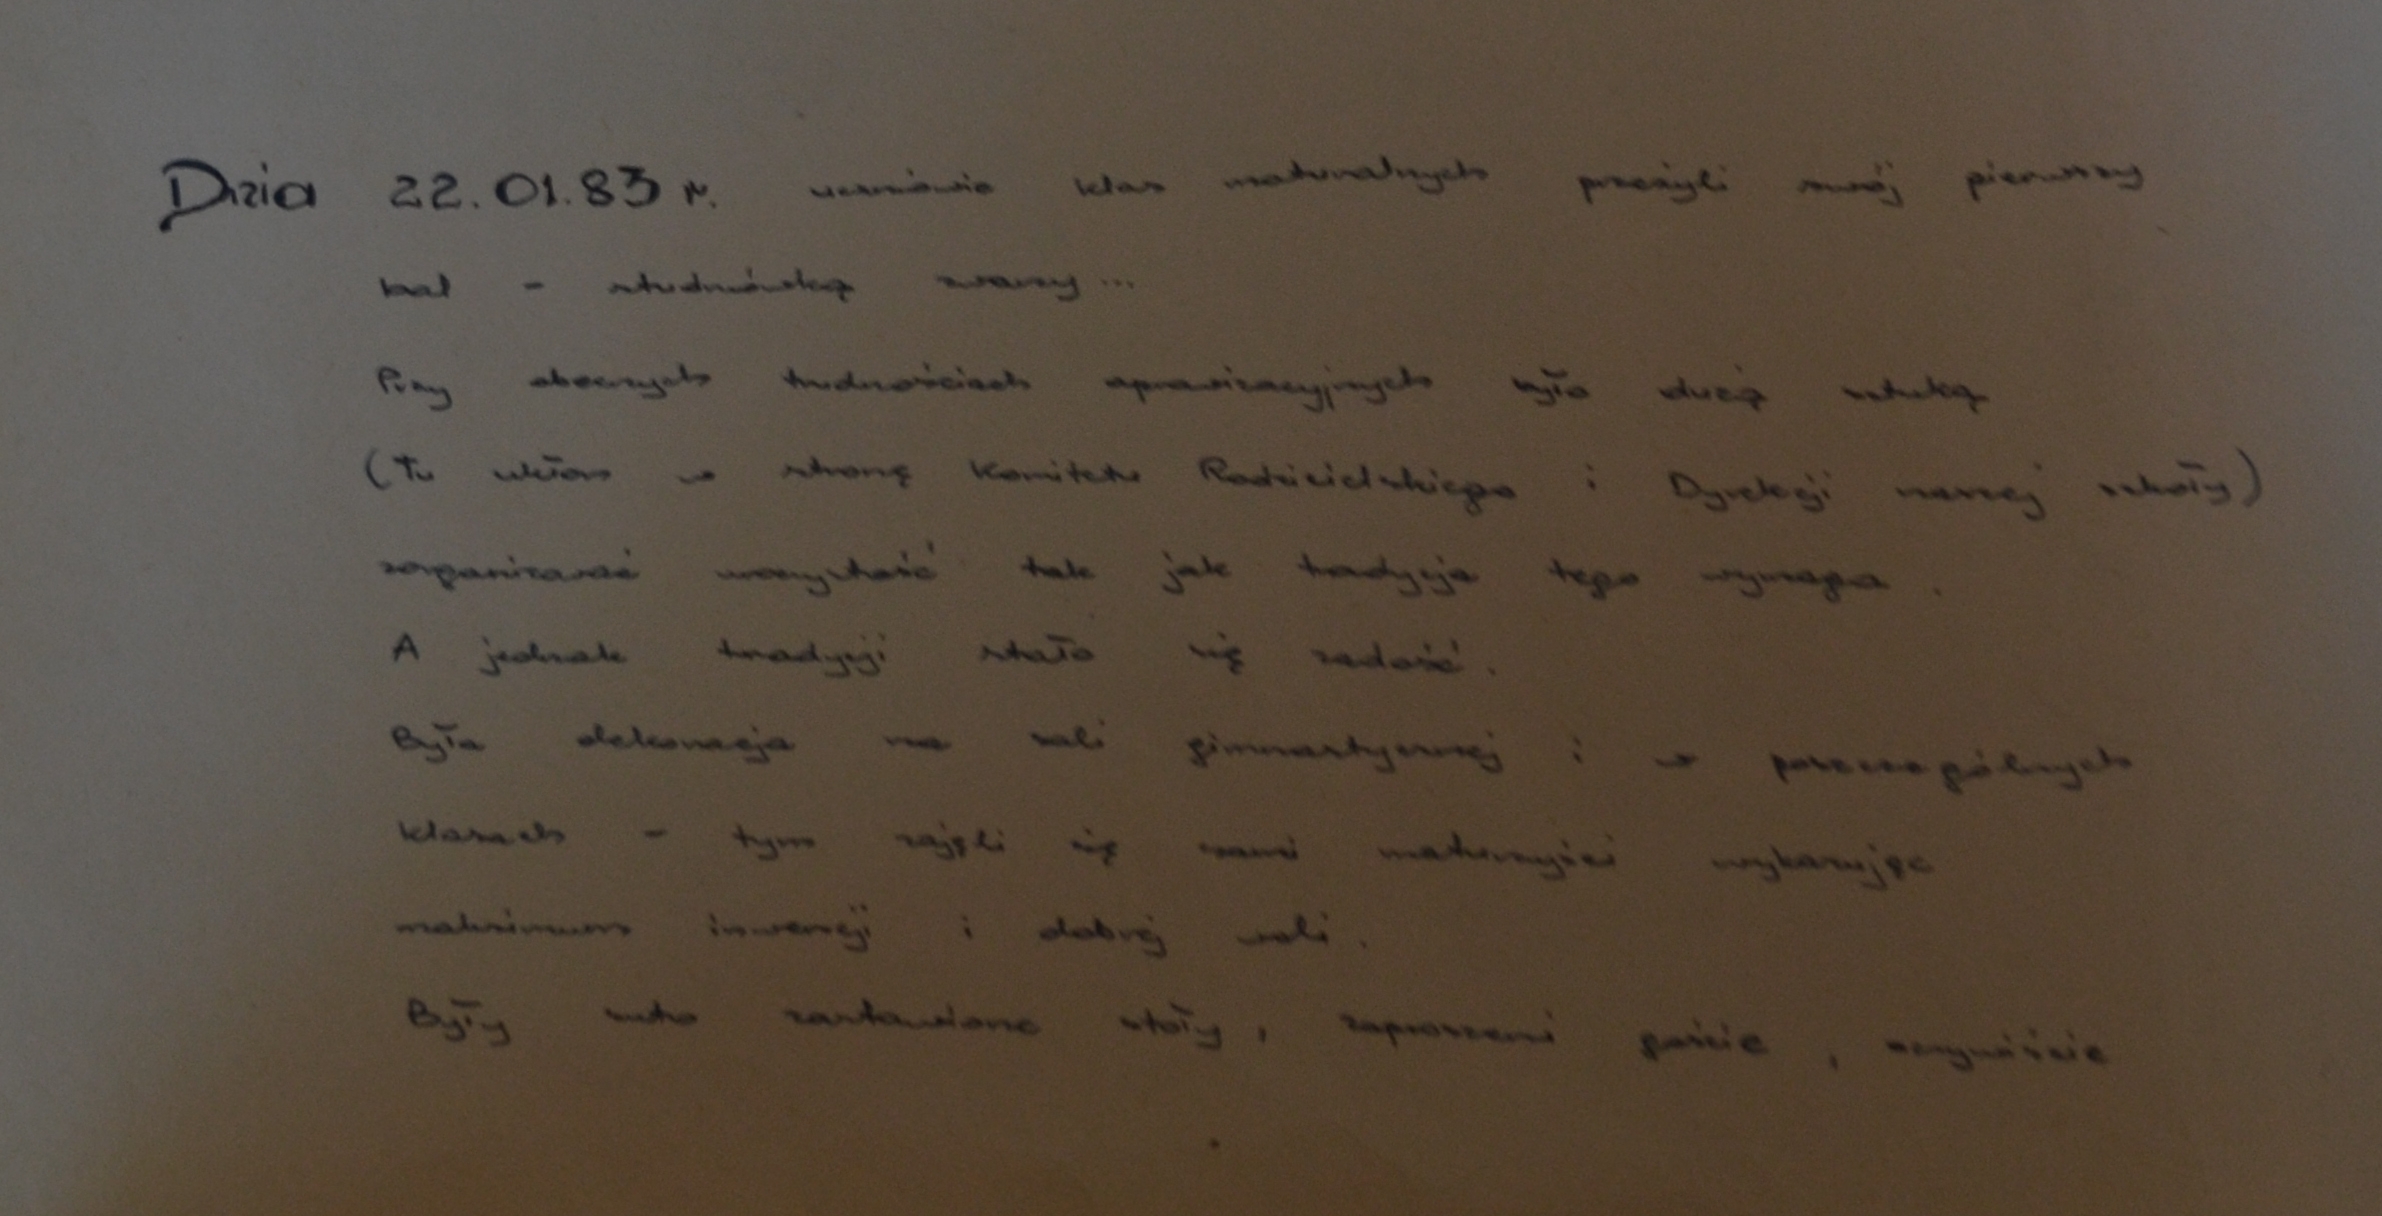 Dnia 22.01.83 r. uczniowie klas maturalnych przeżyli swój pierwszy
bal - studniówką zwany...
Przy obecnych trudnościach aprowizacyjnych było dużą sztuką
(Tu ukłon w stronę Komitetu Rodzicielskiego i Dyrekcji naszej szkoły)
zorganizować uroczystość tak jak tradycja tego wymaga.
A jednak tradycji stało się zadość.
Była dekoracja na sali gimnastycznej i w poszczególnych
klasach - tym zajęli się sami maturzyści wykazując
maksimum inwencji i dobrej woli.
Były suto zastawione stoły, zaproszeni goście, oczywiście